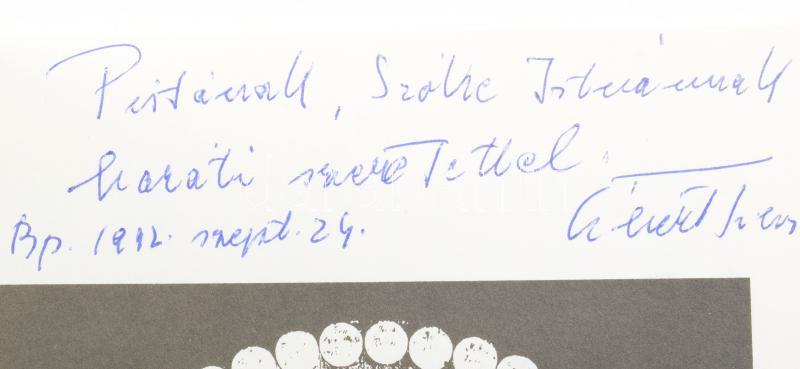 Pistának, Szőke Istvánnak
baráti szeretettel.
Bp. 1992. szept. 24.